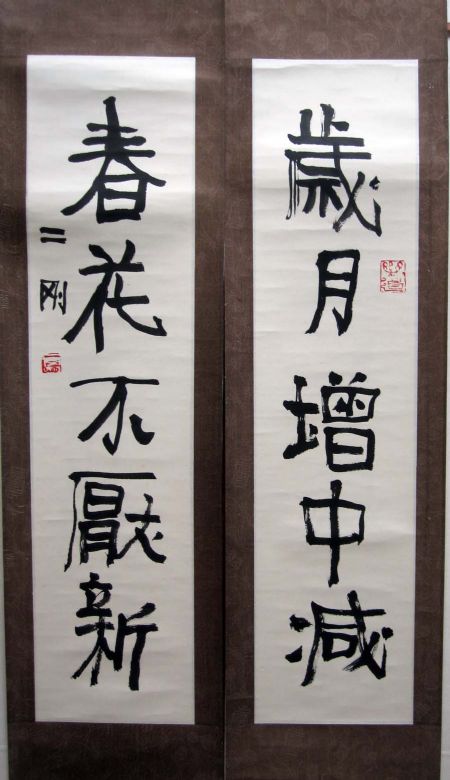 歲月增中減
春花不厭新
二刚